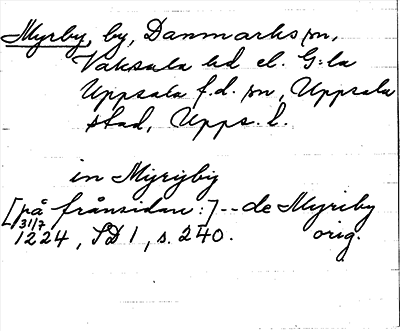 Myrby, by, Danmarks sn,
Vaksala hd el. G:la
Uppsala f.d. sn, Uppsala
stad, Upps. l.
in Myryby
[på frånsidan:] -- de Myriby
31/7
1224, SD 1, s. 240. orig.